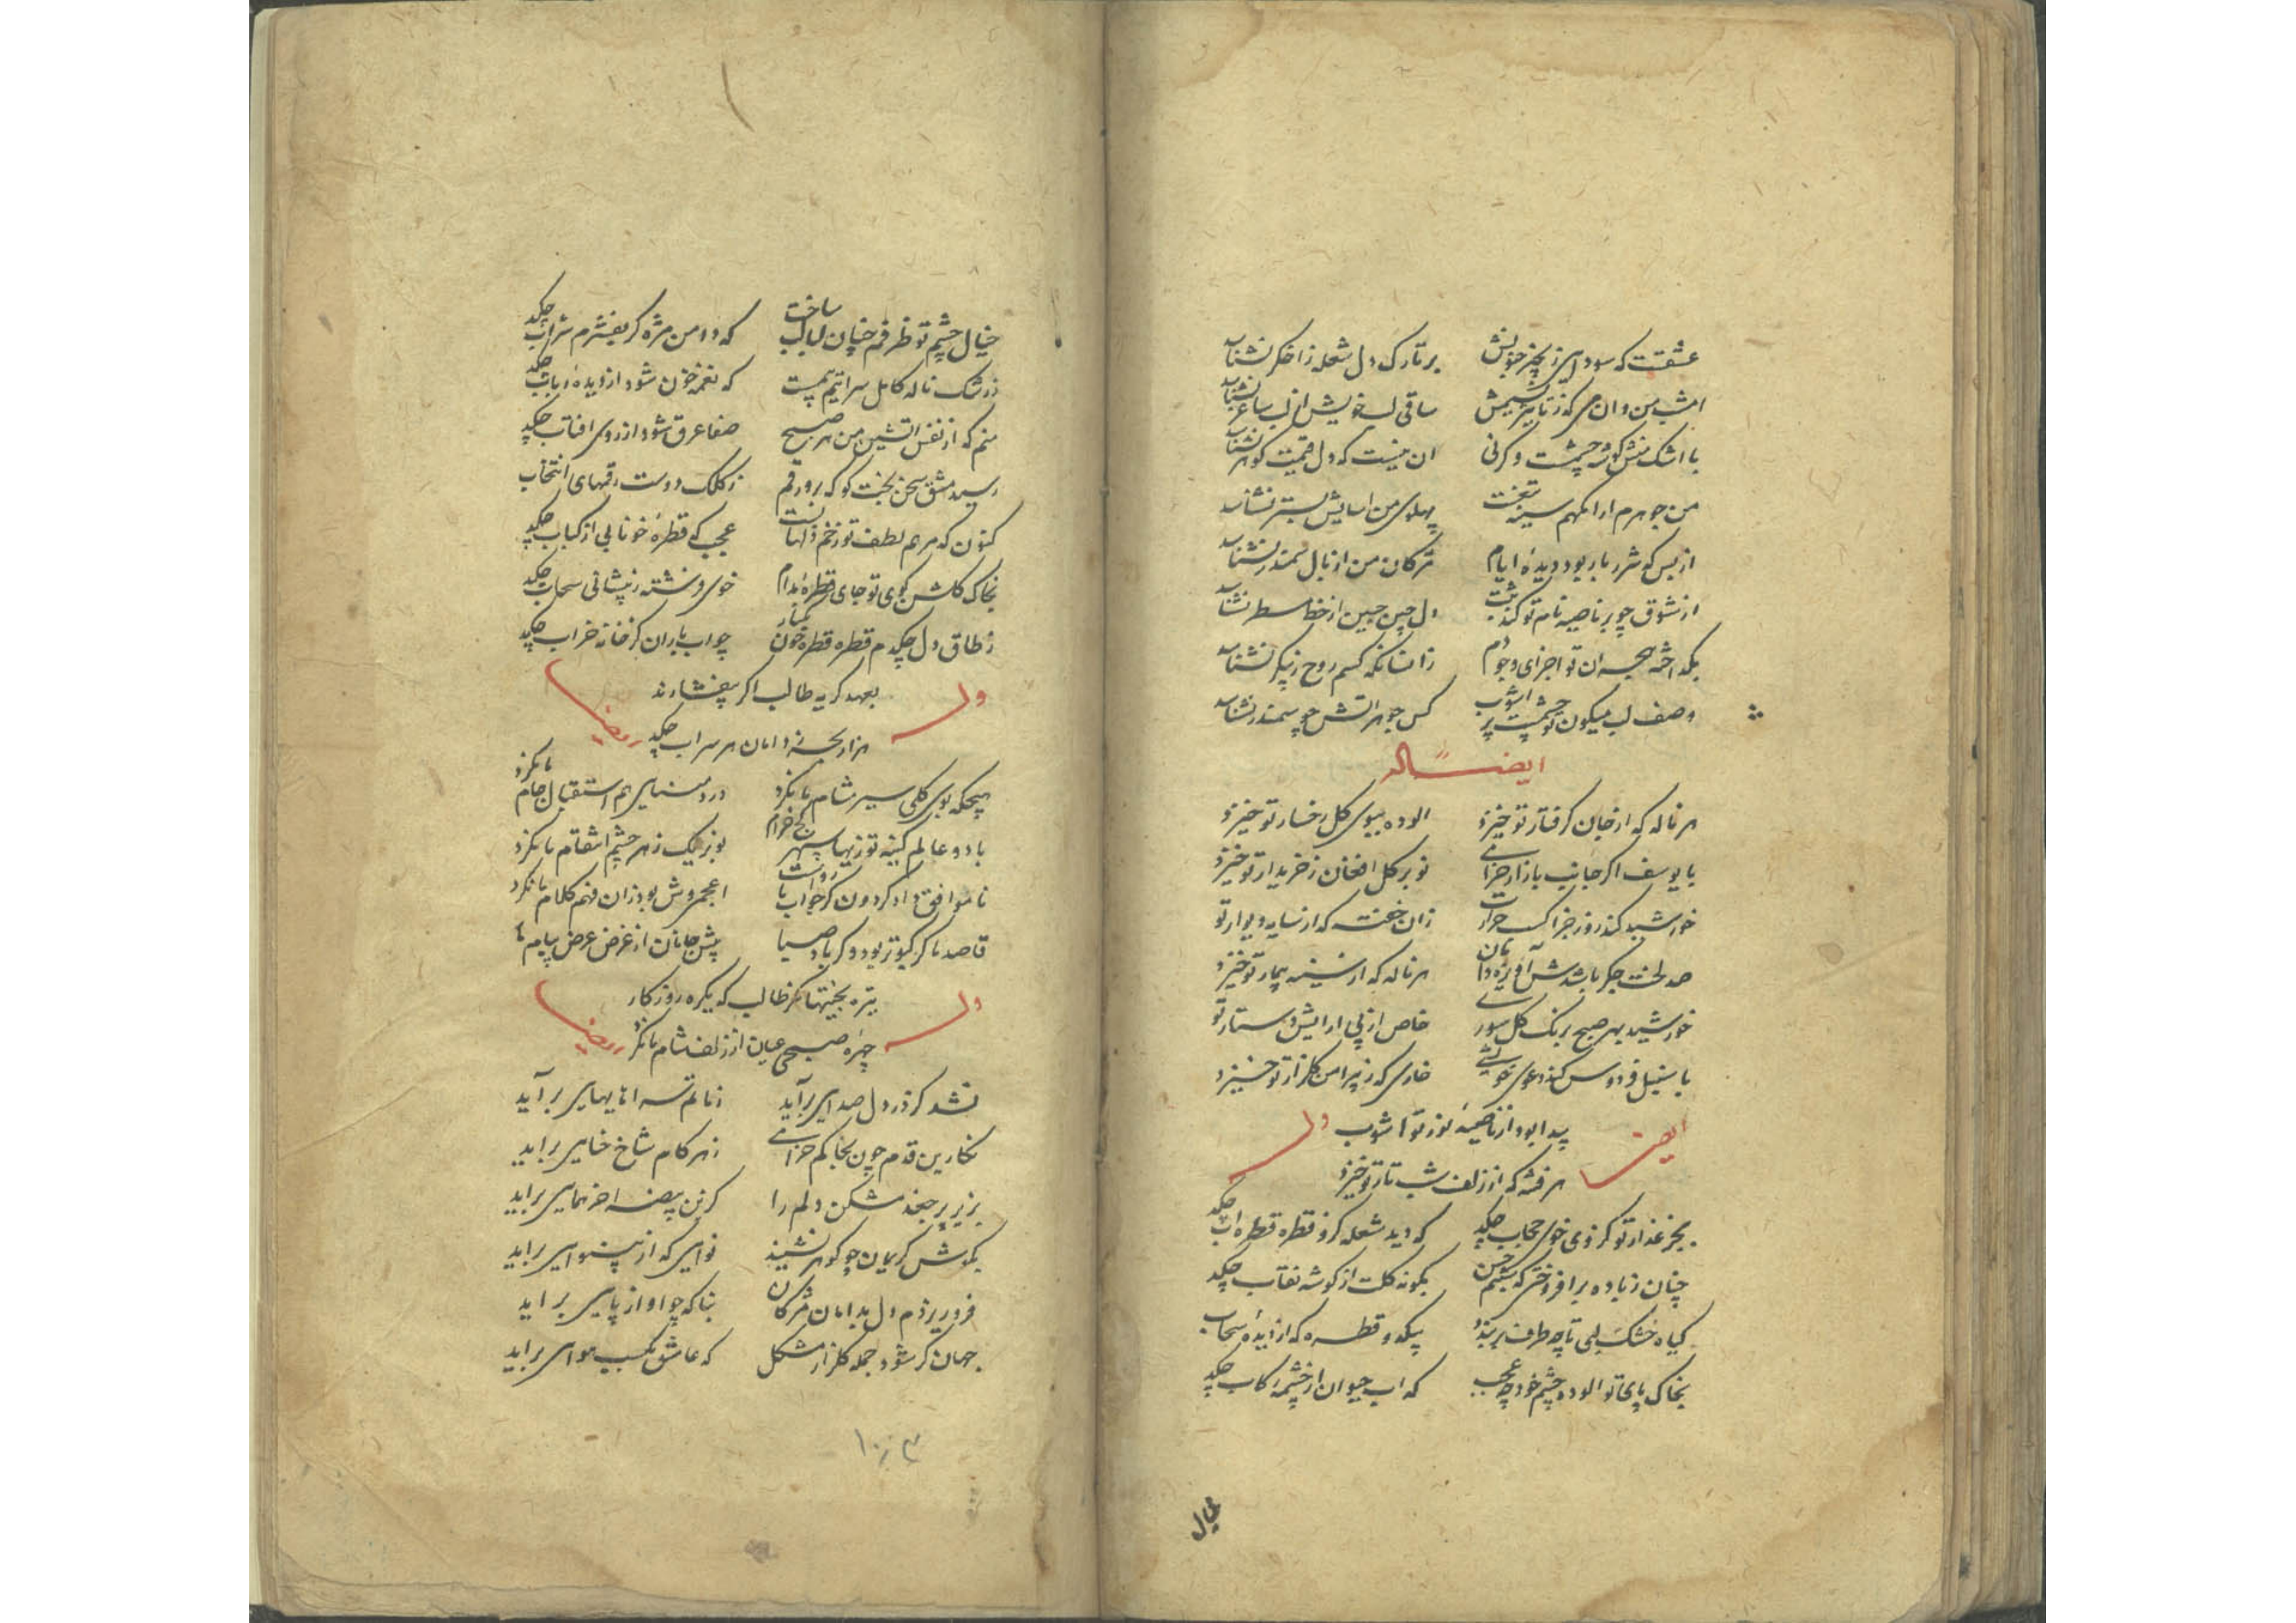 عشقت که سودای ز بجز خویش بر تارک دل شعله ز اخگر نشناسد
امشب من و ان می که ز تاثیر نسیمش ساقی لب خویش از لب ساغر نشناسد
با اشک منش گوشه چشمست و گرنی ان نیست که دل قیمت گوهر نشناسد
من جوهرم ارامگهم سینه پهلوی من اسایش بستر نشناسد
از بس که شرر بار بود دیده ایام مژگان من از بال سمندر نشناسد
از شوق چو بر ناصیه نام تو کند ثبت دل چین جبین از خط مسطر نشناسد
بگداخته هجران تو اجزای وجودم زانسانکه کسم روح ز پیکر نشناسد
وصف لب میگون تو چشمیست پر اشوب کس جوهر اتش چو سمندر نشناسد
ایضا له
هر ناله که از جان گرفتار تو خیزد الوده ببوی گل رخسار تو خیزد
با یوسف اگر جانب بازار خرامی نو بر گل افغان ز خریدار تو خیزد
خورشید کند روز جزا کسب حرارت زان خفته که از سایه دیوار تو
صد لخت جگر باشدش آویزه دامان هر ناله که از سینه بیمار تو خیزد
خورشید بهر صبح برنگ گل سوری خاص از پی ارایش دستار تو
با سنبل فردوس کند دعوی خویشی خاری که ز پیرامن گلزار تو خیزد
پیدا بود از ناصیه نوز تو اشوب
ایضا وله
هر فتنه که از زلف شب تار تو خیزد
بجز عذار تو کز وی خوی حجاب چکد که دید شعله کزو قطره قطره اب چکد
چنان ز باده بر افروختی که شبنم حسن بگونه گلت از گوشه نقاب چکد
گیاه خشک لبی تا چه طرف بر بندد بیکدو قطره که از دیده سحاب
بخاک پای تو الوده چشم خود چه عجب که اب حیوان از چشمه رکاب چکد
خیال
خیال چشم تو ظرفم چنان لبالب ساخت که دامن مژه گر بفشرم شراب چکد
ز رشک ناله کامل سراییم چست که نغمه خون شود از دیده رباب چکد
منم که از نفس اتشین من هر صبح صفا عرق شود از روی افتاب چکد
رسید مشق سخن بخت کو که روز رقم ز کلک دوست رقمهای انتخاب
کنون که مرهم لطف تو زخم دلها بست عجب که قطره خونابی از کباب چکد
بخاک گلشن کوی تو جای قطره مدام خوی فرشته ز پیشانی سحاب چکد
ز طاق دل چکدم قطره قطره خون بکنار چو اب باران کز خانه خراب چکد
بعهد گریه طالب اگر بیفشارند
وله ایضا
هزار بحر ز دامان هر سراب چکد
هیچگه بوی گلی سیر مشام ما نکرد درد مینایی هم استقبال جام ما نکرد
با دو عالم کینه توزیها سپهر کج خرام نوبزیک زهر چشم انتقام ما نکرد
ناموافق داد گردون گر جواب ما رواست اعجمی وش بود زان فهم کلام ما نکرد
قاصد ما گر کبوتر بود و گر باد صبا پیش جانان از غرض عرض پیام ما
تیره بختیها نگر طالب که یکره روزگار
وله ایضا
چهره صبحی عیان از زلف شام ما نکرد
نشد کز در دل صدای برآید ز ماتم سرا های هایی برآید
نگارین قدم چون بخاکم خرامی ز هر گام شاخ حنایی براید
بزیر پر جغد مشکن دلم را کزین بیضه اخر همایی براید
بگوش کریمان چو گوهر نشیند نوایی که از بینوایی براید
فرو ریزدم دل بدامان مژگان بناگه چو اواز پایی براید
جهان گر شود جمله گلزار مشکل که عاشق بکسب هوایی براید